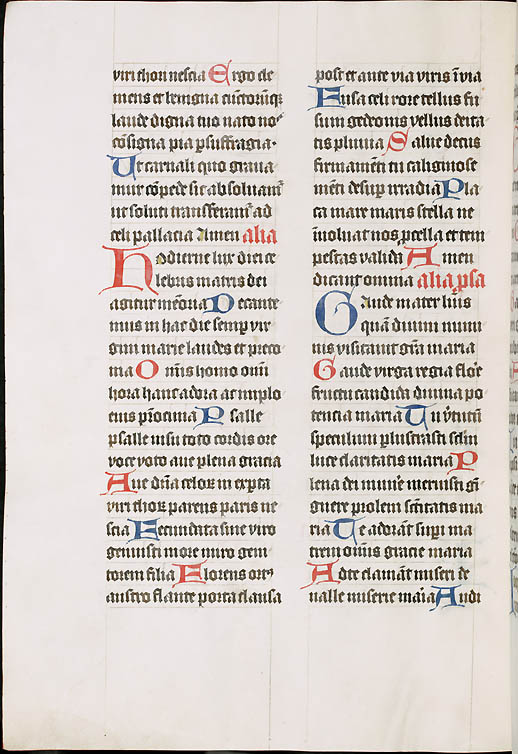 viri thori nescia Ergo cle
mens et benigna cunctorūqꝫ
laude digna tuo nato nos
cōsigna pia ꝑ suffragia
Ut carnali quo grava
mur cōpede sic absoluamr̄
ut soluti transferamr̄ ad
celi pallacia Amen alia
Hodierne lux diei ce
lebris matris dei
agitur mēoria Decante
mus in hac die semꝑ vir
gini marie laudes et preco
nia Omīs homo omī
hora hanc adora et implo
eius pr̄ocinia Psalle
psalle nisu toto cordis ore
voce voto ave plena gracia
Ave dn̄a celoꝝ inexpta
viri thoꝝ parens paris ne
scia Fecundata sine viro
genuisti more miro geni
torem filia Florens ortꝰ
austro flante porta clausa
post et ante via viris īvia
Fusa celi rore tellus fu
sum gedeonis vellus deita
tis pluvia Salve decus
firmamēti tu caliginose
mēti desuꝑ irradia Pla
ca mare maris stella ne
involvat nos ꝓcella et tem
pestas valida Amen
dicant omnia alia ꝓsa
Gaude mater luīs
quā divinū num
nis visitavit gr̄a maria
Gaude virga regia flore
fructu candida divina po
tencia maria Tu v̓tutū
speculum ꝑlustrasti sclm̄
luce claritatis maria P
lena dei mun̄e meruisti gi
gnere prolem sc̄titatis ma
ria Te adorāt suꝑi ma
trem om̄is gracie maria
Ad te clamāt miseri de
valle miserie maīa Audi